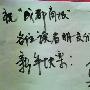 祝“成都商报”
各位读者朋友们
新年快乐!